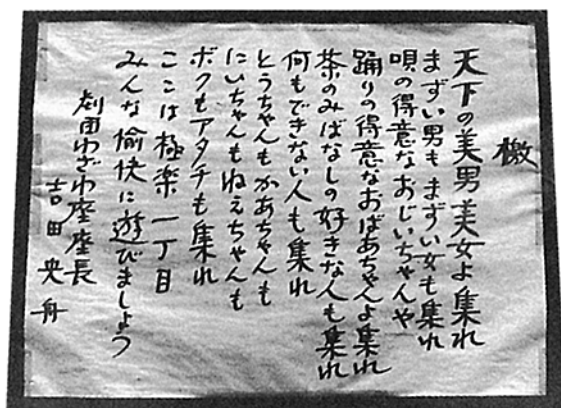 檄
天下の美男美女よ集れ
まずい男もまずい女も集れ
唄の得意なおじいちゃんや
踊りの得意なおばあちゃんよ集れ
茶のみばなしの好きな人も集れ
何もできない人も集れ
とうちゃんもかあちゃんも
にいちゃんもねえちゃんも
ボクもアタチも集れ
ここは極楽一丁目
みんな愉快に遊びましょう
劇団わざわ座座長
吉田央舟